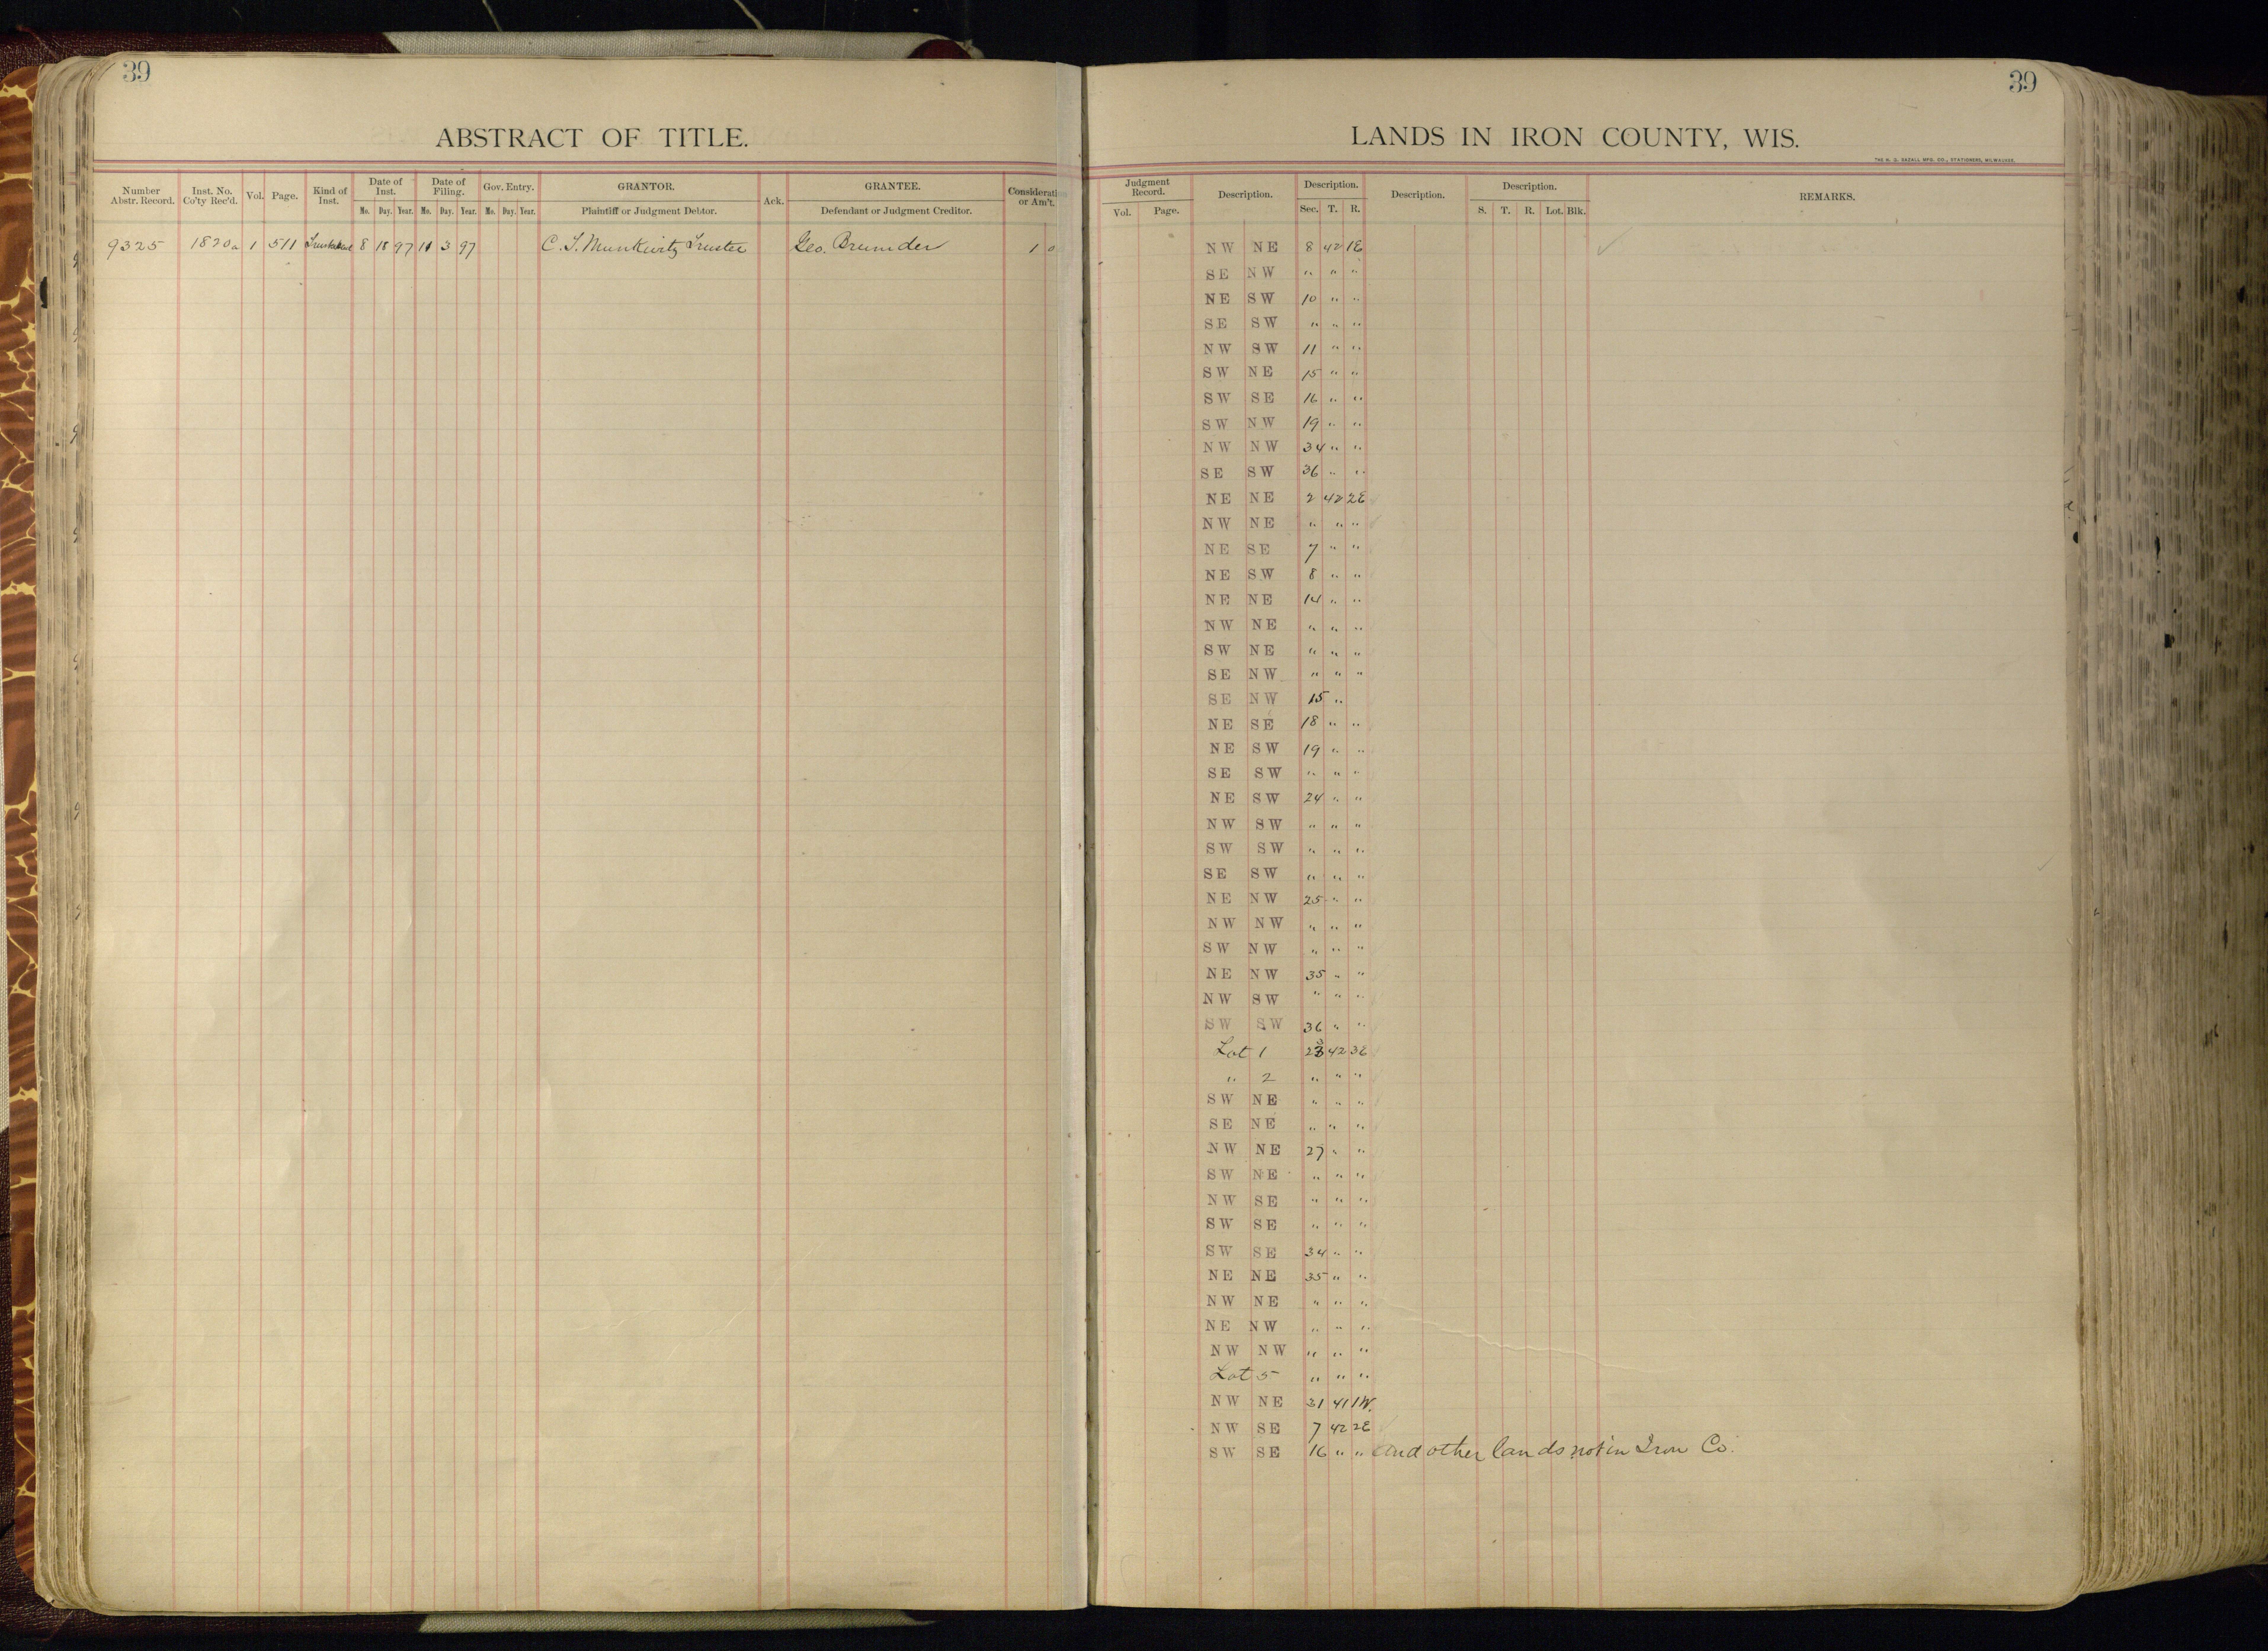 39
ABSTRACT OF TITLE.
Number Abstr. Record. Inst. No. Co'ty Rec'd. Vol. Page. Kind of Inst. Date of Inst. Mo. Day. Year. Date of Filing. Mo. Day. Year. Gov. Entry. Mo. Day. Year. GRANTOR. Plaintiff or Judgment Debtor. Ack. GRANTEE. Defendant or Judgment Creditor. Considerati or Am't.
9325 1820a 1 511 8 18 97 11 3 97 C. T. Munkwitz Trustee Geo. Brumder 1 0
39
LANDS IN IRON COUNTY, WIS.
THE H. G. RAZALL MFG. CO., STATIONERS, MILWAUKEE.
Judgment Record. Vol. Page. Description. Description. Sec. T. R. Description. Description. S. T. R. Lot. Blk. REMARKS.
NW NE 8 42 1E
SE NW " " "
NE SW 10 " "
SE SW " " "
NW SW 11 " "
SW NE 15 " "
SW SE 16 " "
SW NW 19 " "
NW NW 34 " "
SE SW 36 " "
NE NE 2 42 2E
NW NE " " "
NE SE 7 " "
NE SW 8 " "
NE NE 14 " "
NW NE " " "
SW NE " " "
SE NW " " "
SE NW 15 "
NE SE 18 " "
NE SW 19 " "
SE SW " " "
NE SW 24 " "
NW SW " " "
SW SW " " "
SE SW " " "
NE NW 25 " "
NW NW " " "
SW NW " " "
NE NW 35 " "
NW SW " " "
SW SW 36 " "
Lot 1 23 42 3E
" 2 " " "
SW NE " " "
SE NE " " "
NW NE 27 " "
SW NE " " "
NW SE " " "
SW SE " " "
SW SE 34 " "
NE NE 35 " "
NW NE " " "
NE NW " " "
NW NW " " "
Lot 5 " " "
NW NE 31 41 1W.
NW SE 7 42 2E
SW SE 16 " " and other lands not in Iron Co.